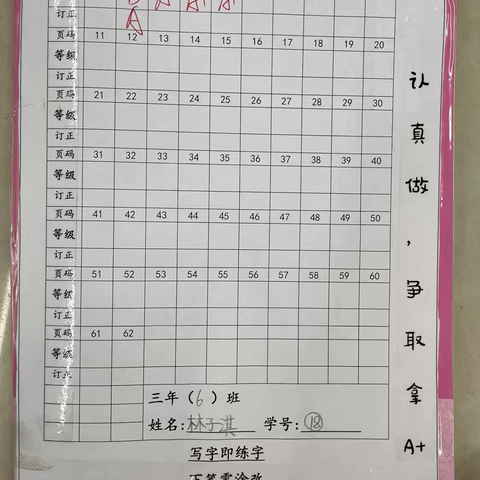 A
订正
页码 11 12 13 14 15 16 17 18 19 20
等级
订正
页码 21 22 23 24 25 26 27 28 29 30
等级
订正
页码 31 32 33 34 35 36 37 38 39 40
等级
订正
页码 41 42 43 44 45 46 47 48 49 50
等级
订正
页码 51 52 53 54 55 56 57 58 59 60
等级
订正
页码 61 62
等级
订正
三年(6)班
姓名:林子淇 学号:⑱
写字即练字
下笔零涂改
认真做,争取拿A+